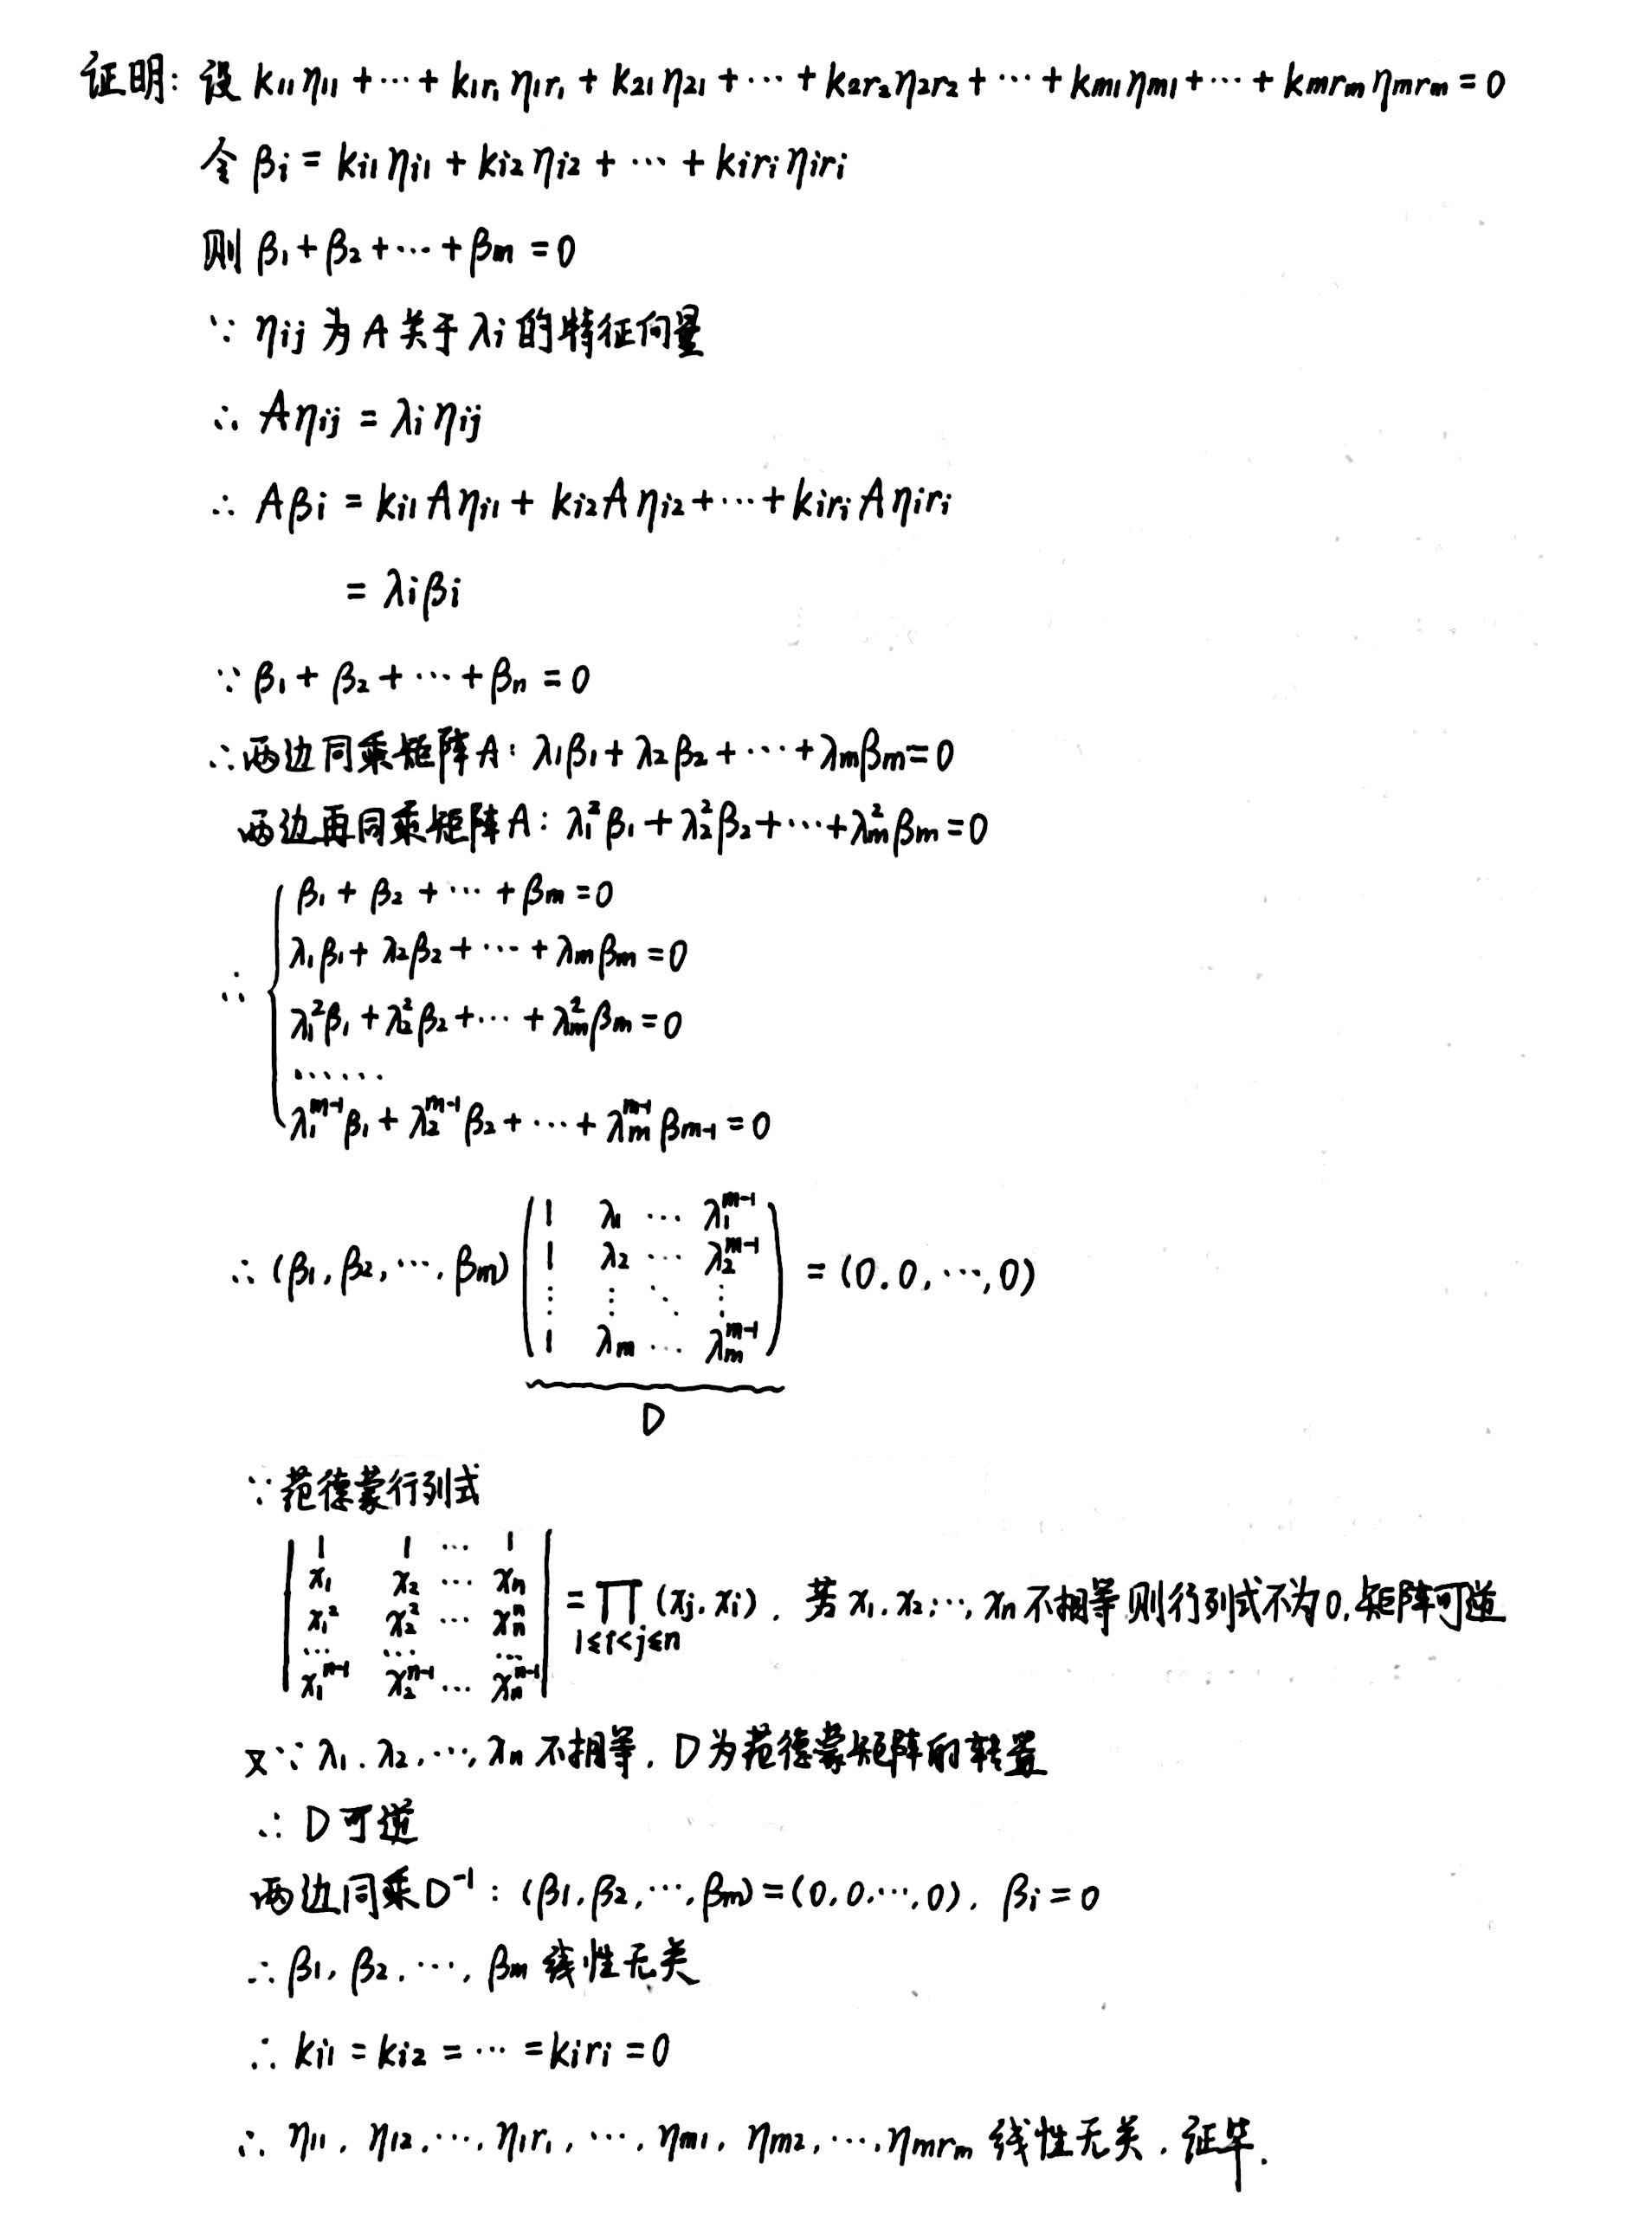 证明: 设 k₁₁η₁₁ + ⋯ + k₁r₁η₁r₁ + k₂₁η₂₁ + ⋯ + k₂r₂η₂r₂ + ⋯ + kₘ₁ηₘ₁ + ⋯ + kₘrₘηₘrₘ = 0
令 βi = ki₁ηi₁ + ki₂ηi₂ + ⋯ + kiriηiri
则 β₁ + β₂ + ⋯ + βₘ = 0
∵ ηij 为 A 关于 λi 的特征向量
∴ Aηij = λiηij
∴ Aβi = ki₁Aηi₁ + ki₂Aηi₂ + ⋯ + kiriAηiri
= λiβi
∵ β₁ + β₂ + ⋯ + βₙ = 0
∴ 两边同乘矩阵A: λ₁β₁ + λ₂β₂ + ⋯ + λₘβₘ = 0
两边再同乘矩阵A: λ₁²β₁ + λ₂²β₂ + ⋯ + λₘ²βₘ = 0
β₁ + β₂ + ⋯ + βₘ = 0
λ₁β₁ + λ₂β₂ + ⋯ + λₘβₘ = 0
∴ { λ₁²β₁ + λ₂²β₂ + ⋯ + λₘ²βₘ = 0
⋯⋯
λ₁ᵐ⁻¹β₁ + λ₂ᵐ⁻¹β₂ + ⋯ + λₘᵐ⁻¹βₘ₋₁ = 0
1 λ₁ ⋯ λ₁ᵐ⁻¹
1 λ₂ ⋯ λ₂ᵐ⁻¹
∴ (β₁, β₂, ⋯, βₘ) ( ⋮ ⋮ ⋱ ⋮ ) = (0. 0, ⋯, 0)
1 λₘ ⋯ λₘᵐ⁻¹
D
∵ 范德蒙行列式
1 1 ⋯ 1
x₁ x₂ ⋯ xₙ
x₁² x₂² ⋯ xₙⁿ = ∏ (xj, xi), 若 x₁, x₂, ⋯, xₙ 不相等 则行列式不为0, 矩阵可逆
⋯ ⋯ ⋯ 1≤i<j≤n
x₁ⁿ⁻¹ x₂ⁿ⁻¹ ⋯ xₙⁿ⁻¹
又∵ λ₁, λ₂, ⋯, λₙ 不相等, D为范德蒙矩阵的转置
∴ D可逆
两边同乘D⁻¹: (β₁, β₂, ⋯, βₘ) = (0, 0, ⋯, 0), βi = 0
∴ β₁, β₂, ⋯, βₘ 线性无关
∴ ki₁ = ki₂ = ⋯ = kiri = 0
∴ η₁₁, η₁₂, ⋯, η₁r₁, ⋯, ηₘ₁, ηₘ₂, ⋯, ηₘrₘ 线性无关, 证毕.